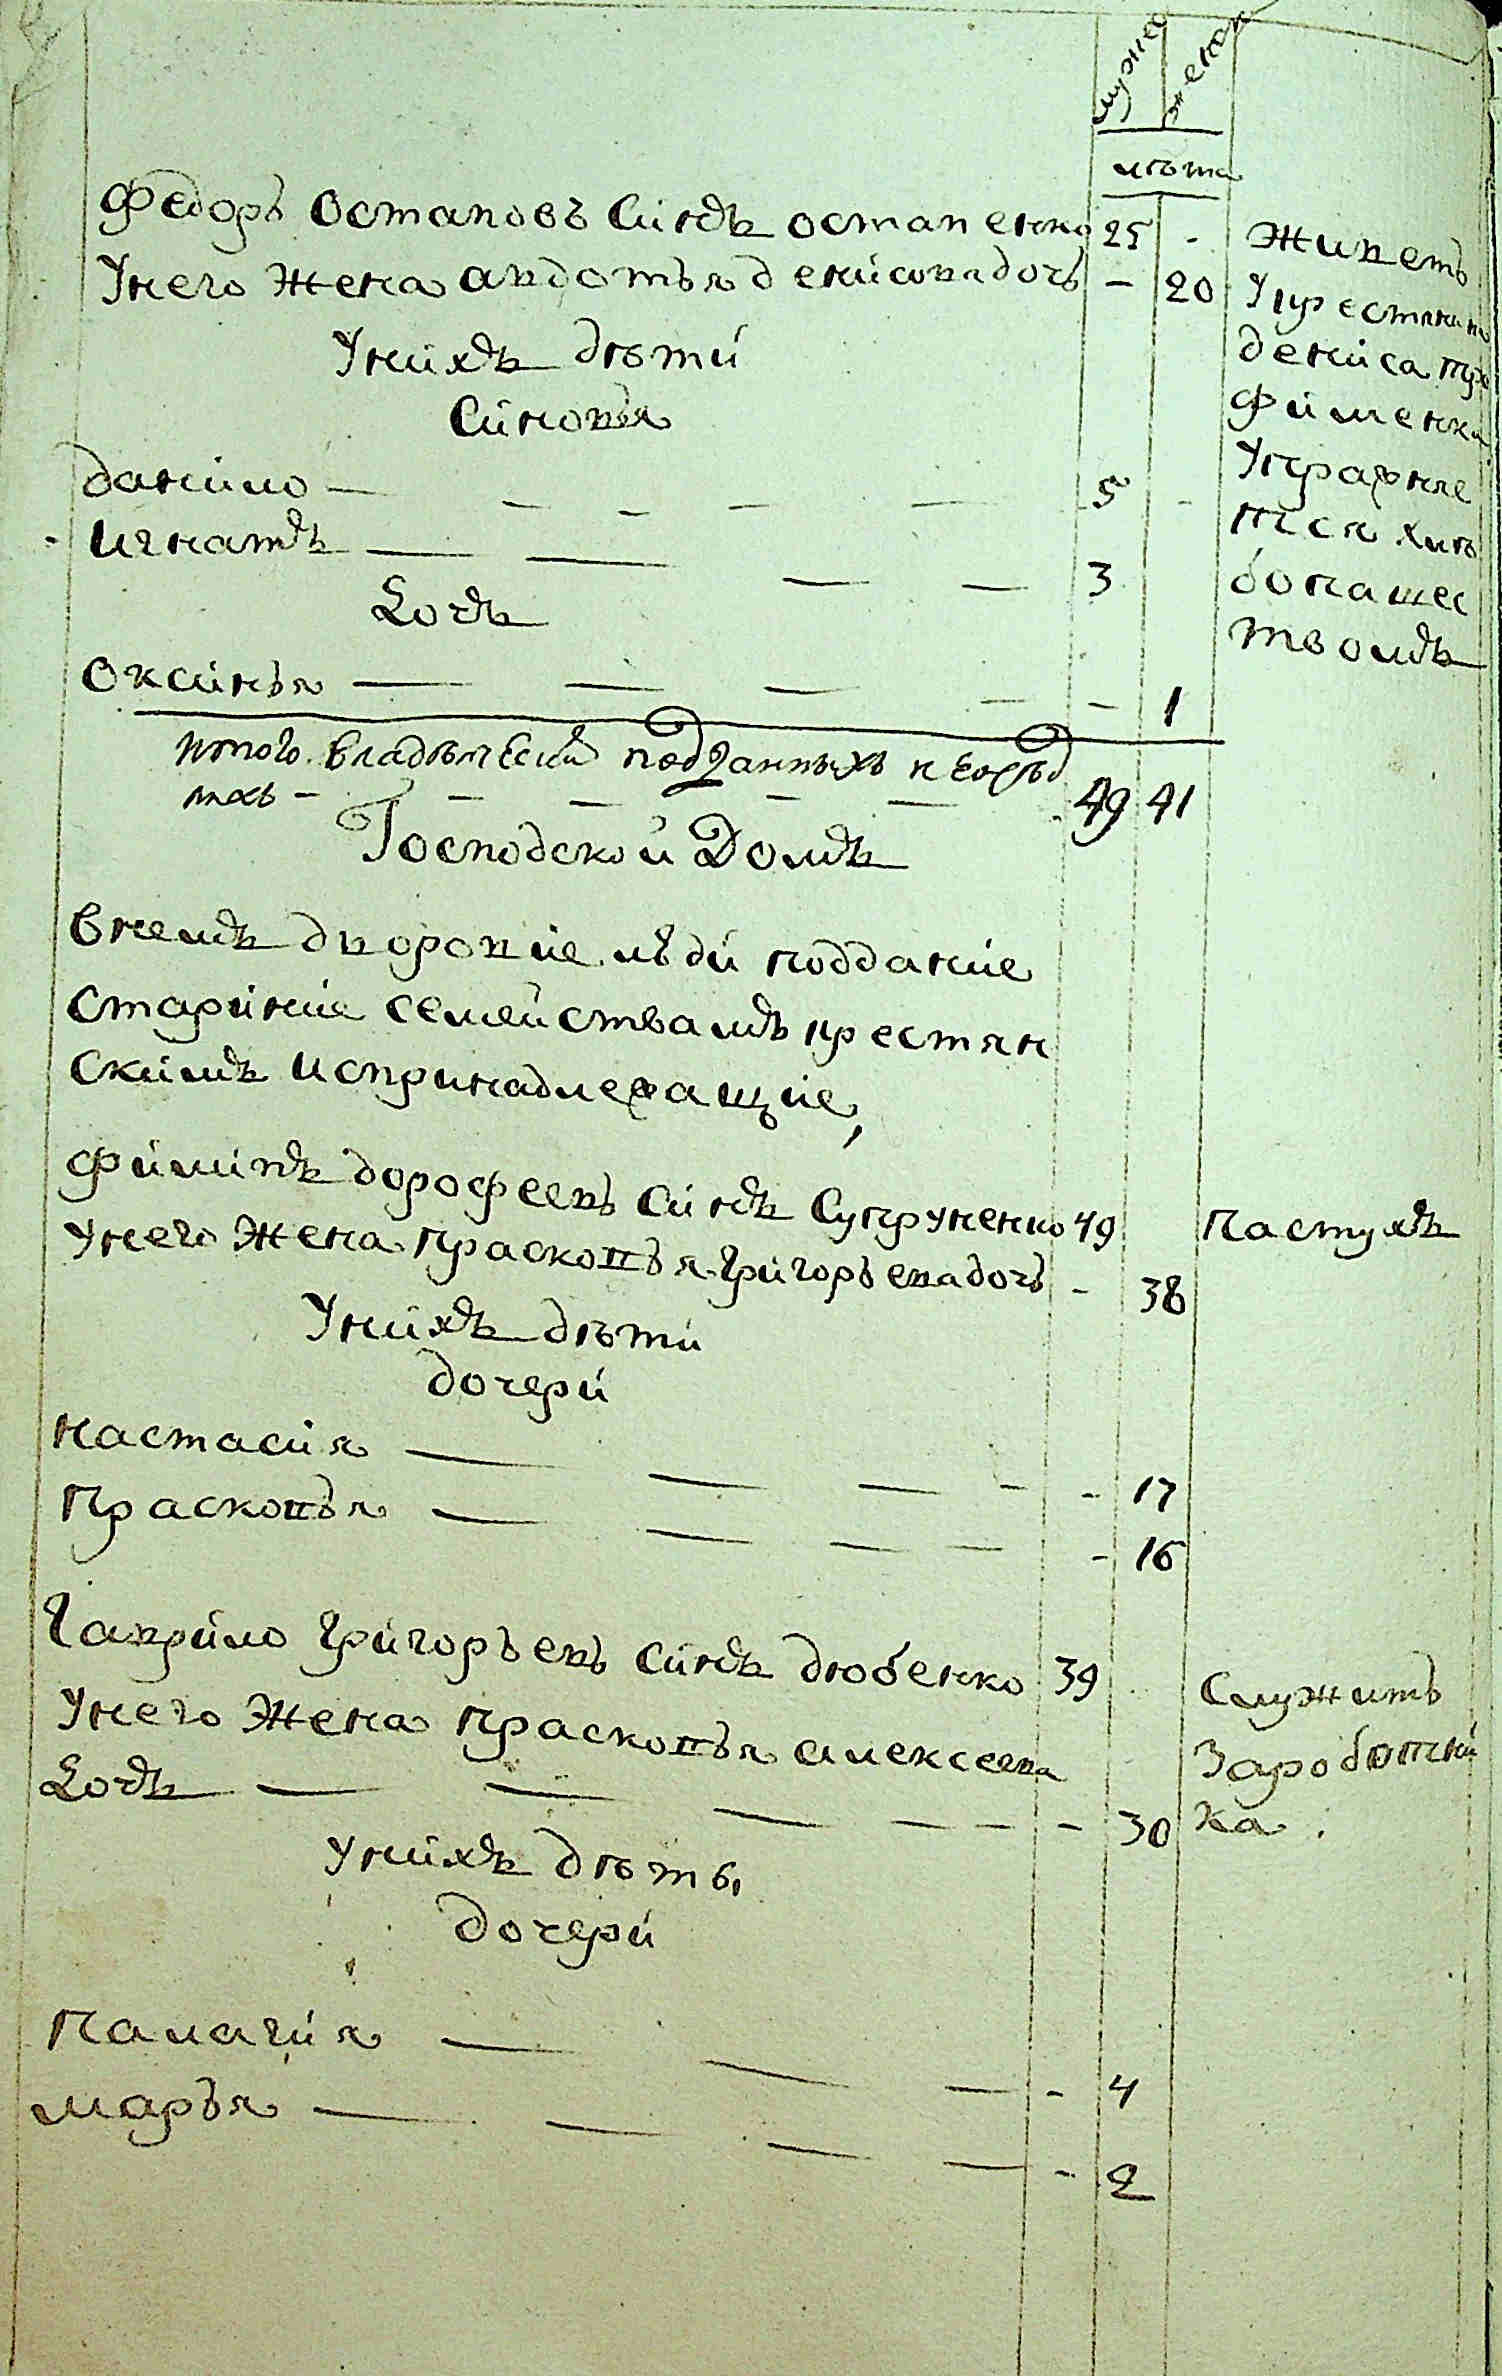 мужеск женск
лѣта
Федоръ Остаповъ синъ остапенко 25 - живетъ
Унего жена авдотья денисовадочъ - 20 Укрестянина
Унихъ дѣти дениса тро
Синовья фименка
данило - - - - 5 - Упражняе
игнатъ - - - - 3 тся хлѣ
Дочъ бопашес
оксинья - - - - - 1 твомъ
итого владѣлческий подданныхъ
тахъ - - - - - 49 41
Господской Домъ
Внемъ дворовие люди поддание
старинние семействамъ крестян
скимъ испринадлежащие,
филипъ дорофеевъ синъ Супруненко 49 пастухъ
Унего жена прасковья григорьевадочъ - 38
Унихъ дѣти
дочери
настасия - - - - - 17
прасковья - - - - - 16
Гаврило григорьевъ синъ дюбенко 39 служитъ
Унего жена прасковья алексеева Зароботни
Дочъ - - - - - - 30 ка
Унихъ дѣты
дочери
палагия - - - - 4
марья - - - - - 2